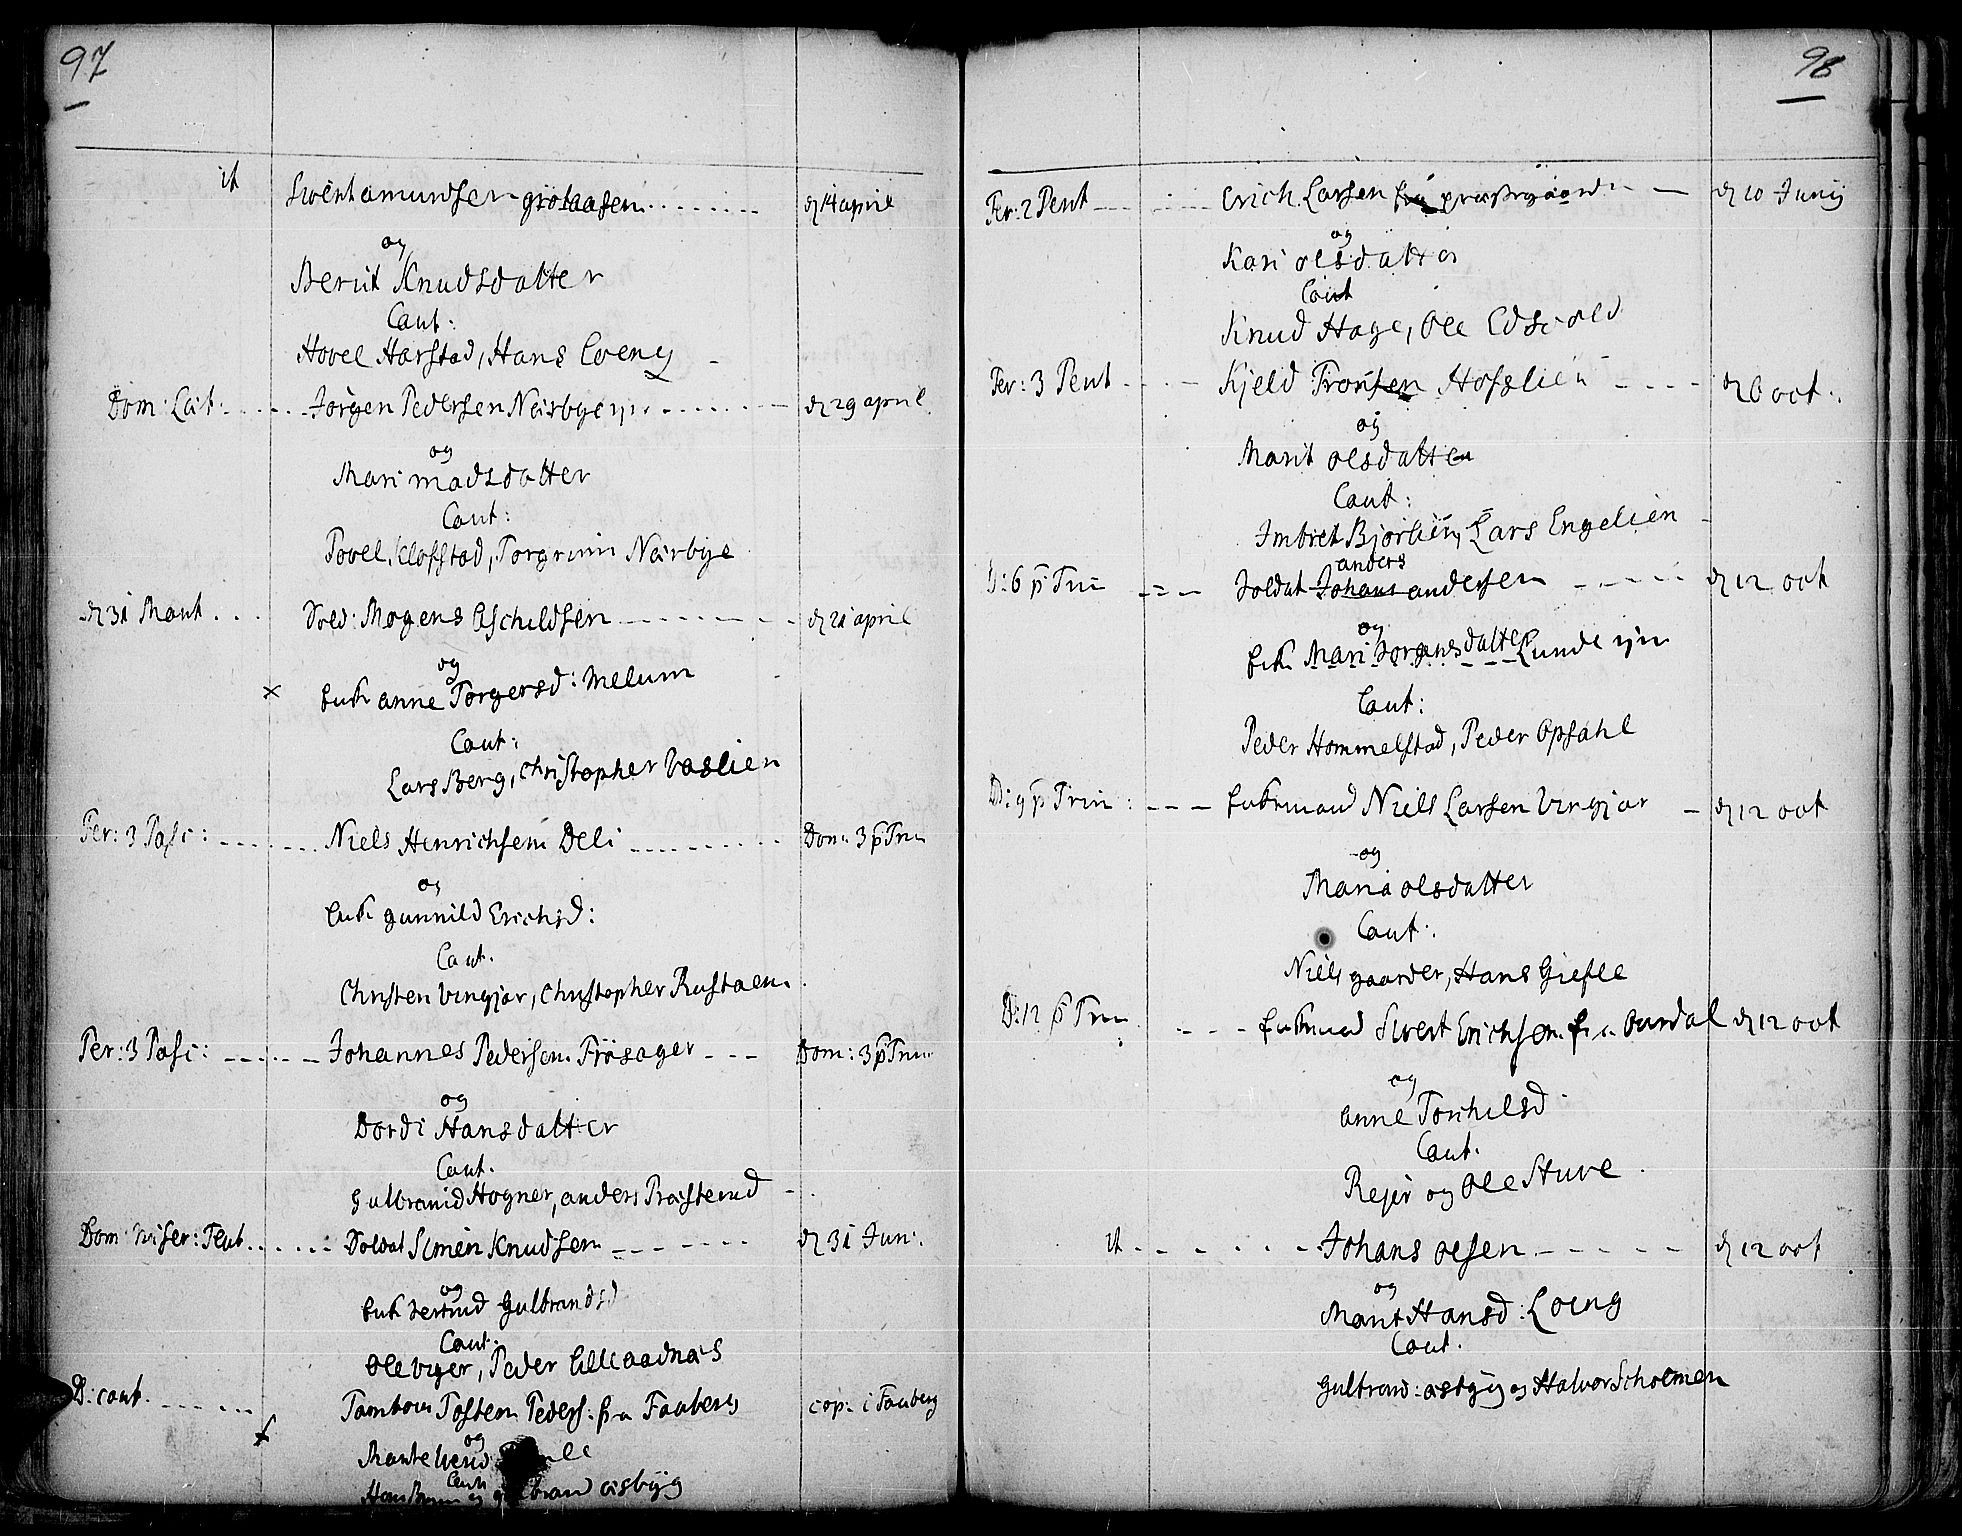 97
it Swent amundsen grötaasen d 14 april
og
Berut Knudsdatter
Caut:
Hovel Harstad, Hans Loeng
Dom: Læt: Jörgen Pedersen Nærbye d 29 april
og
Mari madsdatter
Caut:
Povel Klofstad, Torgrim Nærbye
d 31 Mart Sold: Mogens Aschildsen d 21 april
og
x anne Torgersd: Melum
Caut:
Lars Berg, Christopher Baslien
Fer: 3 Pasc: Niels Henrichsen Deli Dom 3 p Trin
og
gunnild Erichsd:
Caut.
Christen Vingjar, Christopher Rustaen
Fer: 3 Pasc: Johannes Pedersen Frösager Dom: 3 p Trin
og
Dordi Hansdatter
Caut.
Gulbrand Hogner, anders Præsterud
Dom: Soldat Simen Knudsen d 31 Jun:
og
Gulbrandsd
Caut:
Ole Peder
D: cant. Tambour Tosten Peders: fra Faaberg cop: i Faaberg
og
Caut:
Hans og gulbrand asbÿg
98
Fer: 2 Pent Erich Larsen fra d 10 Junij
og
Kari olsdatter
Caut
Knud Hage, Ole Edsvold
Fer: 3 Pent Kjeld Fronsen Hofslien d 6 oct.
og
Marit olsdatter
Caut:
Imbret Bjorlien, Lars Engelien
D: 6 p Trin Soldat Johans anders andersen d 12 oct
og
Mari Jorgensdatter Lunde
Caut:
Peder Hommelstad, Peder Opsahl
D: 9 p Trin: Niels Larsen Vingjar d 12 oct
og
Maria olsdatter
Caut.
Niels gaarder, Hans Giefle
D: 12 p Trin Sivert Erichsen fra Aurdal d 12 oct
og
anne Torchilsd
Caut.
Rejer og Ole Sture
it Johans olsen d 12 oct
og
Marit Hansd: Loeng
Caut.
Gulbrand astgÿ og Halvor Scholmen